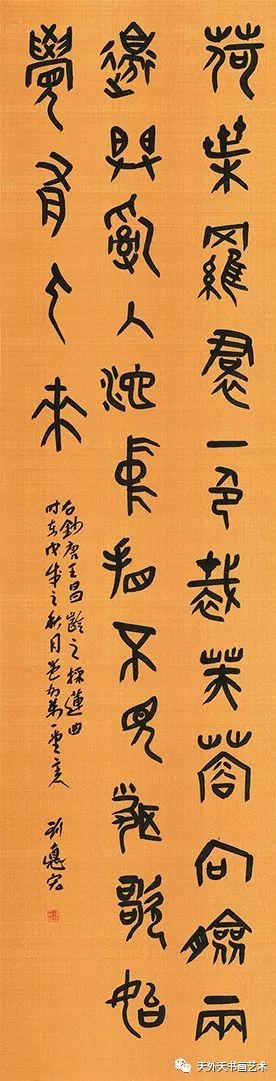 荷葉羅裙一色裁芙蓉向臉兩
邊開亂入池中看不見聞歌始
覺有人來
右鈔唐王昌齡之採蓮曲
时在戊戌之秋月
天外天书画艺术